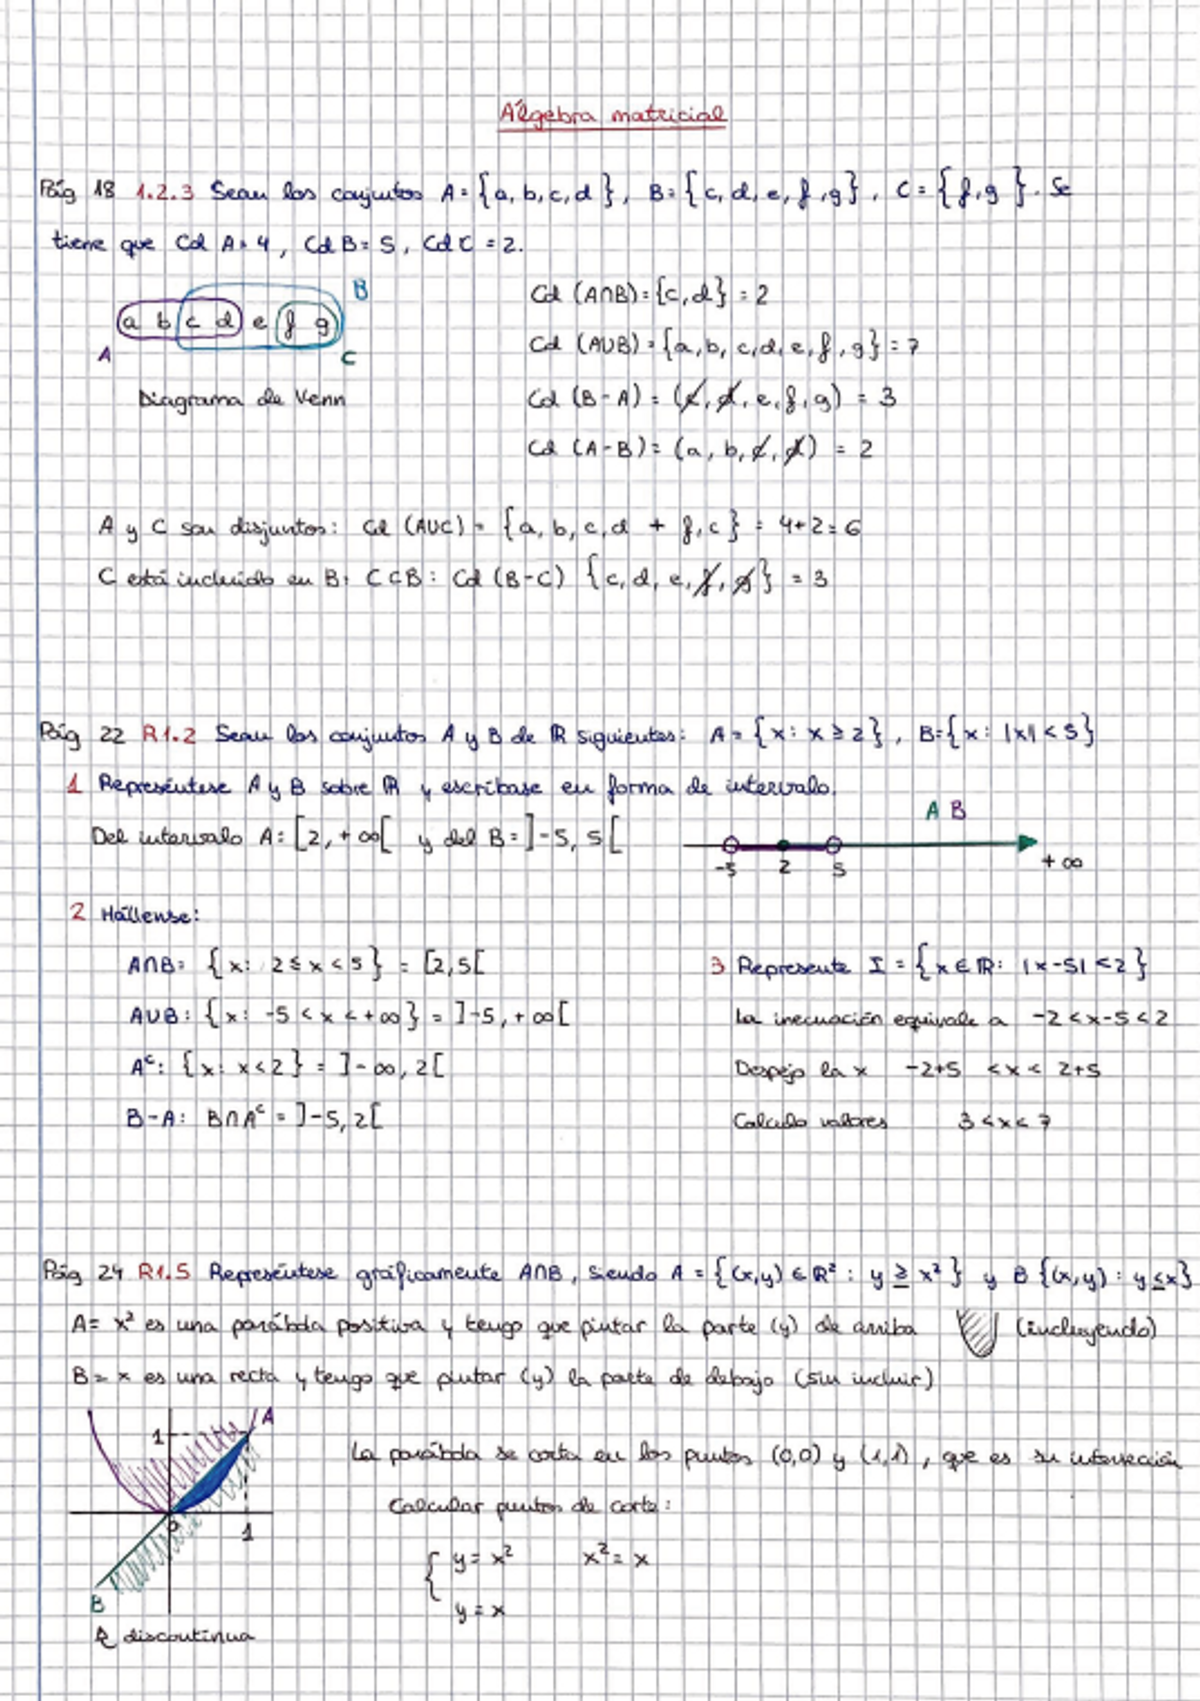 Álgebra matricial
Pág 18 1.2.3 Sean los conjuntos A = {a, b, c, d}, B = {c, d, e, f, g}, C = {f, g}. Se
tiene que Cd A = 4, Cd B = 5, Cd C = 2.
B
a b c d e f g
A
C
Diagrama de Venn
Cd (A∩B) = {c, d} = 2
Cd (A∪B) = {a, b, c, d, e, f, g} = 7
Cd (B-A) = (c, d, e, f, g) = 3
Cd (A-B) = (a, b, c, d) = 2
A y C son disjuntos: Cd (A∪C) = {a, b, c, d + f, c} = 4+2=6
C está incluido en B: C⊂B: Cd (B-C) {c, d, e, f, g} = 3
Pág 22 R1.2 Sean los conjuntos A y B de ℝ siguientes: A = {x: x ≥ 2}, B={x: |x| < 5}
1 Represéntese A y B sobre ℝ y escríbase en forma de intervalo.
Del intervalo A: [2, +∞[ y del B = ]-5, 5[
A B
-5 2 5 +∞
2 Hállense:
A∩B: {x: 2 ≤ x < 5} = [2, 5[
A∪B: {x: -5 < x < +∞} = ]-5, +∞[
Aᶜ: {x: x < 2} = ]-∞, 2[
B-A: B∩Aᶜ = ]-5, 2[
3 Represente I = {x ∈ ℝ: |x-5| < 2}
La inecuación equivale a -2 < x-5 < 2
Despejo la x -2+5 < x < 2+5
Calculo valores 3 < x < 7
Pág 24 R1.5 Represéntese gráficamente A∩B, siendo A = {(x,y) ∈ ℝ² : y ≥ x²} y B {(x,y) : y ≤ x}
A = x² es una parábola positiva y tengo que pintar la parte (y) de arriba (incluyendo)
B = x es una recta y tengo que pintar (y) la parte de debajo (sin incluir)
A
1
0
1
B
R discontinua
La parábola se corta en los puntos (0,0) y (1,1), que es su intersección
Calcular puntos de corte:
{ y = x² x² = x
y = x